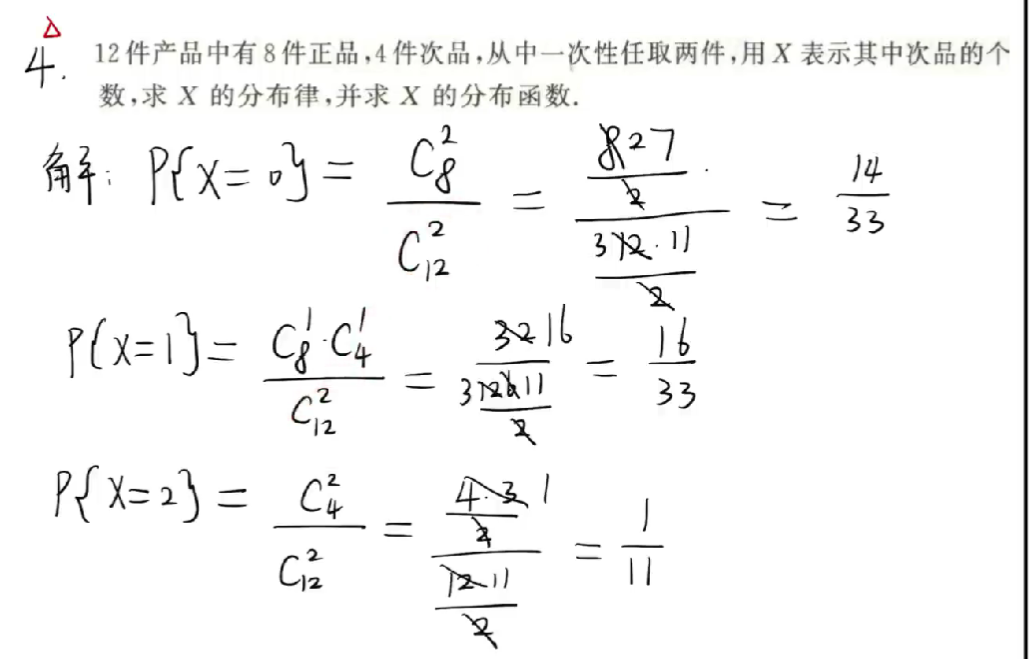 △
4. 12件产品中有8件正品,4件次品,从中一次性任取两件,用 X 表示其中次品的个
数,求 X 的分布律,并求 X 的分布函数.
解: P{X=0} = C₈²/C₁₂² = (8·7/2)/(12·11/2) = 14/33
P{X=1} = C₈¹·C₄¹/C₁₂² = 32/(12·11/2) = 16/33
P{X=2} = C₄²/C₁₂² = (4·3/2)/(12·11/2) = 1/11